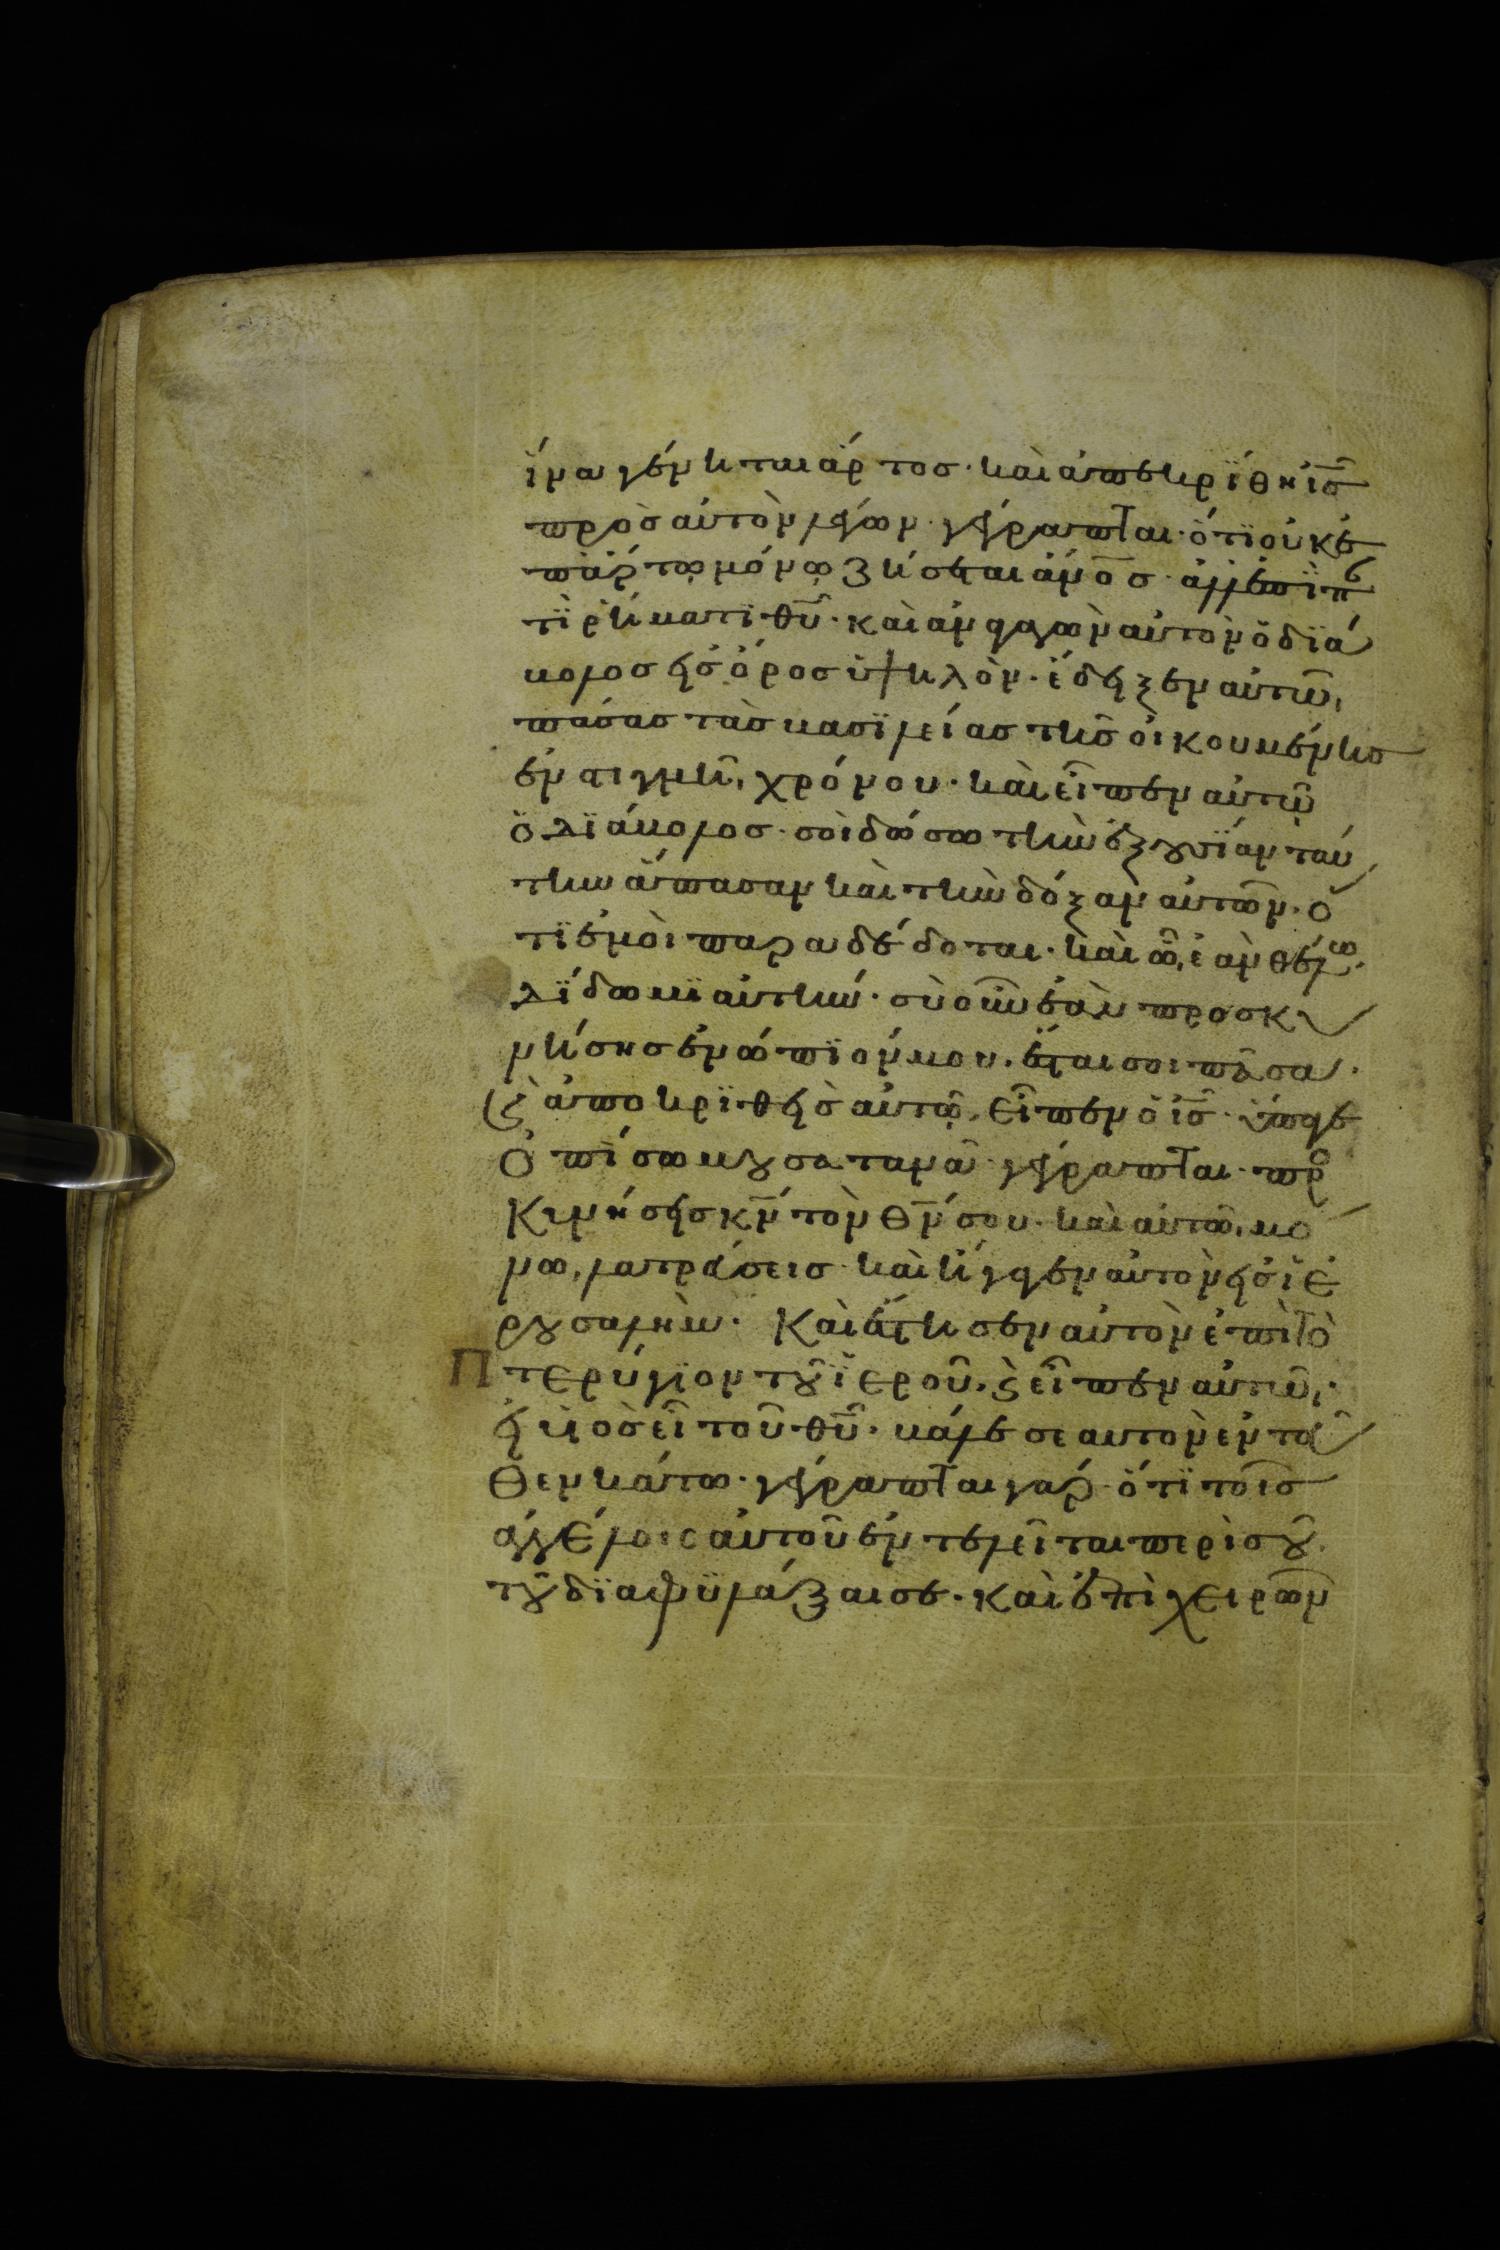 ἵνα γένηται ἄρτος· καὶ ἀπεκρίθη ἰς̅
πρὸς αὐτὸν λέγων· γέγραπται· ὅτι οὐκ ἐ
π' ἄρτω μόνω ζήσεται ἄνο̅ς· ἀλλ' ἐπὶ πα
τὶ ῥήματι θυ̅· καὶ ἀναγαγὼν αὐτὸν ὁ διά
βολος εἰς ὄρος ὑψηλὸν· ἔδειξεν αὐτῶ,
πάσας τὰς βασιλείας τῆς οἰκουμένης
ἐν στιγμῆ, χρόνου· καὶ εἶπεν αὐτῶ
ὁ διάβολος· σοὶ δώσω τὴν ἐξουσίαν ταύ
την ἅπασαν καὶ τὴν δόξαν αὐτῶν· ὅ
τι ἐμοὶ παραδέδοται· καὶ ὧ, ἐὰν θέλω·
δίδωμι αὐτήν· σὺ οὖν ἐὰν προσκυ
νήσης ἐνώπιόν μου, ἔσται σοι πᾶσα·
καὶ ἀποκριθεὶς αὐτῶ, εἶπεν ὁ ἰς̅· ὕπαγε
ὀπίσω μου σατανᾶ· γέγραπται· προσ
κυνήσεις κν̅ τὸν θν̅ σου· καὶ αὐτῶ, μό
νω, λατρεύσεις· καὶ ἤγαγεν αὐτὸν εἰς ἰε
ρουσαλήμ· Καὶ ἔστησεν αὐτὸν ἐπὶ τὸ
πτερύγιον τοῦ ἱεροῦ, καὶ εἶπεν αὐτῶ,·
εἰ υἱὸς εἶ τοῦ θυ̅· βάλε σεαυτὸν ἐντεῦ
θεν κάτω· γέγραπται γάρ· ὅτι τοῖς
ἀγγέλοις αὐτοῦ ἐντελεῖται περὶ σοῦ
τοῦ διαφυλάξαι σε· καὶ ἐπὶ χειρῶν